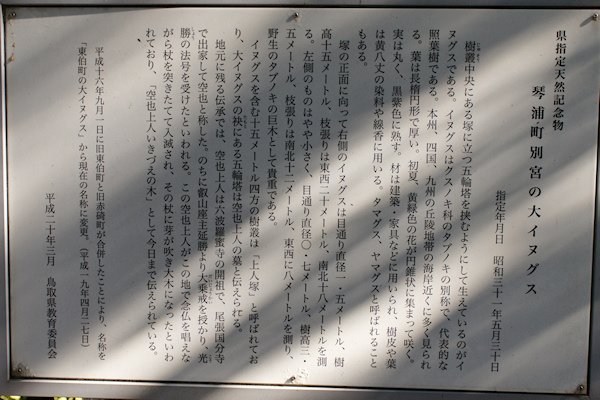 県指定天然記念物
琴浦町別宮の大イヌグス
指定年月日 昭和三十一年五月三十日
樹叢中央にある塚に立つ五輪塔を挟むようにして生えているのがイ
ヌグスである。イヌグスはクスノキ科のタブノキの別称で、代表的な
照葉樹である。本州、四国、九州の丘陵地帯の海岸近くに多く見られ
る。葉は長楕円形で厚い。初夏、黄緑色の花が円錐状に集まって咲く。
実は丸く、黒紫色に熟す。材は建築・家具などに用いられ、樹皮や葉
は黄八丈の染料や線香に用いる。タマグス、ヤマグスと呼ばれること
もある。
塚の正面に向って右側のイヌグスは目通り直径一・五メートル、樹
高十五メートル、枝張りは東西二十メートル、南北十八メートルを測
る。左側のものはやや小さく、目通り直径〇・七メートル、樹高三・
五メートル、枝張りは南北十二メートル、東西に八メートルを測り、
野生のタブノキの巨木として貴重である。
イヌグスを含む十五メートル四方の樹叢は「上人塚」と呼ばれてお
り、大イヌグスの袂にある五輪塔は空也上人の墓と伝えられる。
地元に残る伝承では、空也上人は六波羅蜜寺の開祖で、尾張国分寺
で出家して空也と称した。のちに叡山座主延勝より大乗戒を授かり、光
勝の法号を受けたといわれる。この空也上人がこの地で念仏を唱えな
がら杖を突きたてて入滅され、その杖に芽が吹き大木になったといわ
れており、「空也上人いきづえの木」として今日まで伝えられている。
平成十六年九月一日に旧東伯町と旧赤碕町が合併したことにより、名称を
「東伯町の大イヌグス」から現在の名称に変更。(平成一九年四月二七日)
平成二十年三月 鳥取県教育委員会